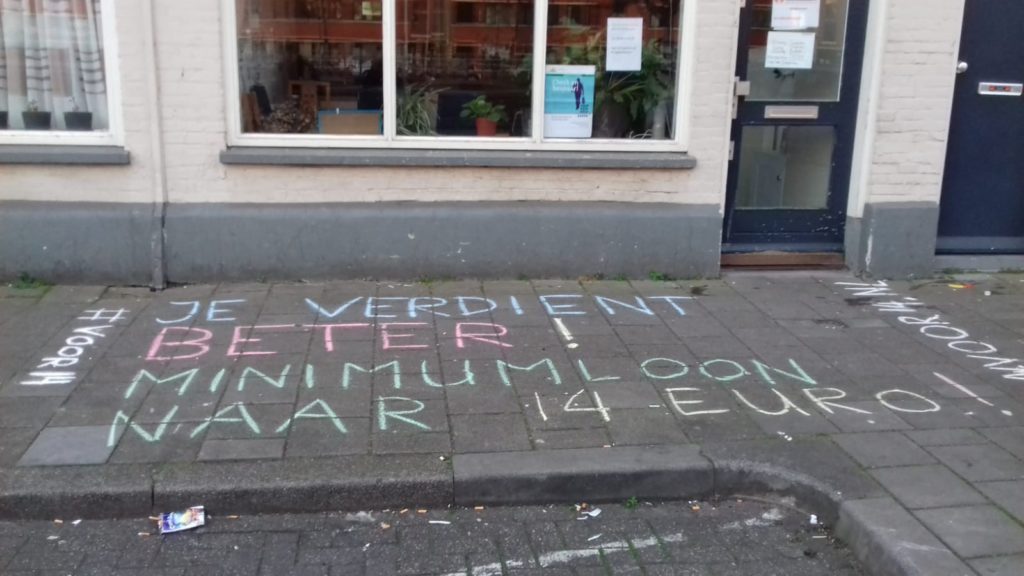 #VOOR14
JE VERDIENT
BETER!
MINIMUMLOON
NAAR 14 EURO!